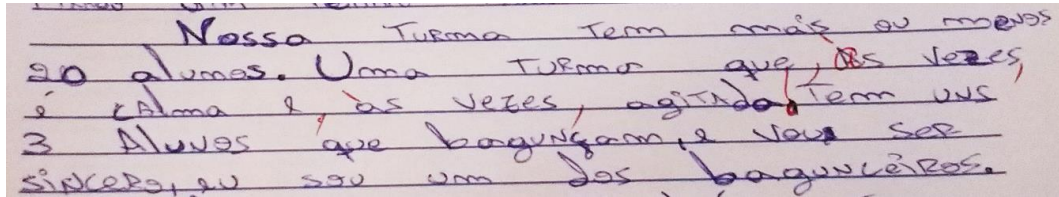 Nossa Turma Tem mais ou menos
20 alunos. Uma Turma que, às vezes,
é calma e, às vezes, agitada. Tem uns
3 Alunos que bagunçam, e vou ser
sincero, eu sou um dos bagunceiros.